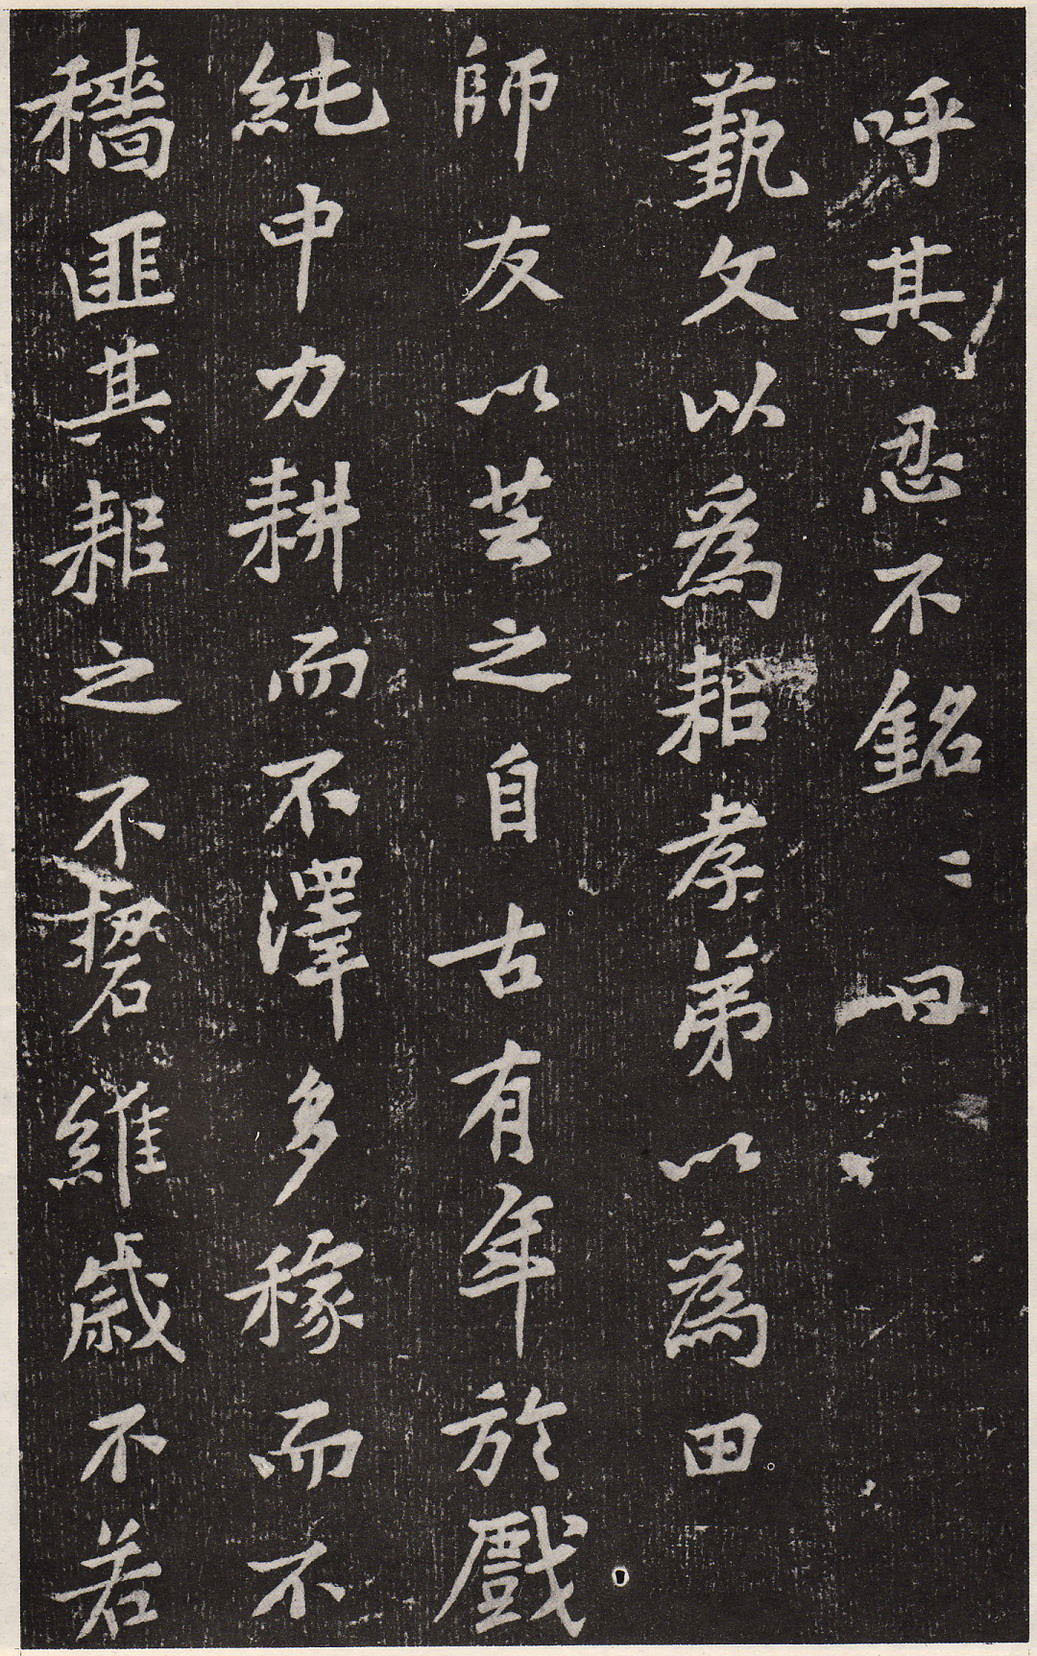 呼其忍不銘〻曰
蓺文以爲耜孝弟以爲田
師友以芸之自古有年於戲
純中力耕而不澤多稼而不
穡匪其耜之不䂮維歲不若